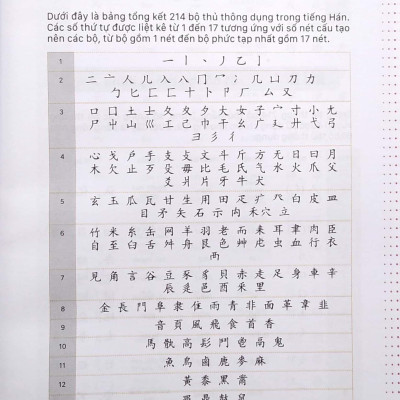 Dưới đây là bảng tổng kết 214 bộ thủ thông dụng trong tiếng Hán.
Các số thứ tự được liệt kê từ 1 đến 17 tương ứng với số nét cấu tạo
nên các bộ, từ bộ gồm 1 nét đến bộ phức tạp nhất gồm 17 nét.
1 一丨丶丿乙亅
2 二亠人儿入八冂冖冫几凵刀力
勹匕匚匸十卜卩厂厶又
3 口囗土士夂夊夕大女子宀寸小尢
尸屮山巛工己巾干幺广廴廾弋弓
彐彡彳
4 心戈戶手支攴文斗斤方无日曰月
木欠止歹殳毋比毛氏气水火爪父
爻爿片牙牛犬
5 玄玉瓜瓦甘生用田疋疒癶白皮皿
目矛矢石示禸禾穴立
6 竹米糸缶网羊羽老而耒耳聿肉臣
自至臼舌舛舟艮色艸虍虫血行衣
西
7 見角言谷豆豕豸貝赤走足身車辛
辰辵邑酉釆里
8 金長門阜隶隹雨青非面革韋韭
9 音頁風飛食首香
10 馬骫高髟鬥鬯鬲鬼
11 魚鳥鹵鹿麥麻
12 黃黍黑黹